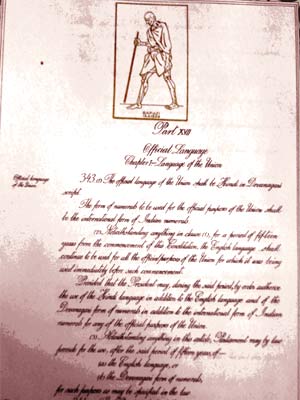 Part XVII
Official Language
Chapter I.—Language of the Union
Official language
of the Union.
343. (1) The official language of the Union shall be Hindi in Devanagari
script.
The form of numerals to be used for the official purposes of the Union shall
be the international form of Indian numerals.
(2) Notwithstanding anything in clause (1), for a period of fifteen
years from the commencement of this Constitution, the English language shall
continue to be used for all the official purposes of the Union for which it was being
used immediately before such commencement:
Provided that the President may, during the said period, by order authorise
the use of the Hindi language in addition to the English language and of the
Devanagari form of numerals in addition to the international form of Indian
numerals for any of the official purposes of the Union.
(3) Notwithstanding anything in this article, Parliament may by law
provide for the use, after the said period of fifteen years, of—
(a) the English language, or
(b) the Devanagari form of numerals,
for such purposes as may be specified in the law.